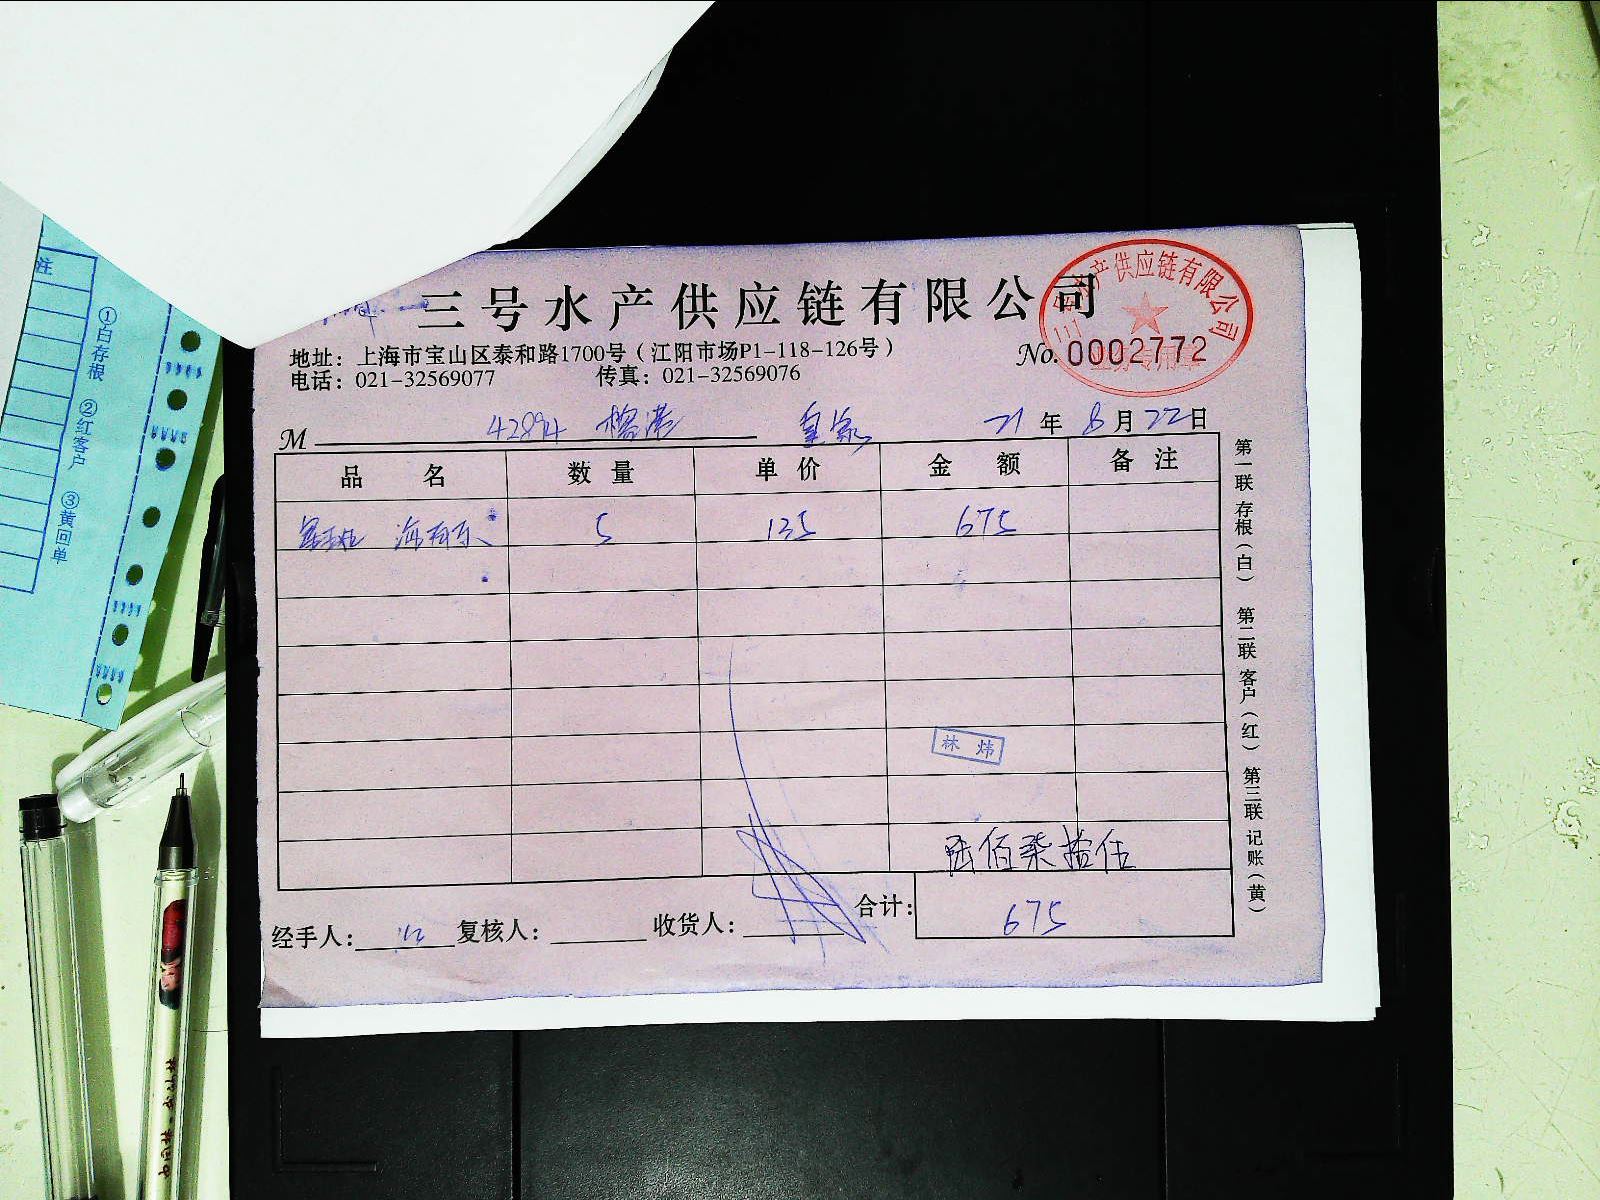 三号水产供应链有限公司
地址：上海市宝山区泰和路1700号（江阳市场P1-118-126号）
电话：021-32569077 传真：021-32569076
No. 0002772
产供应链有限公司
M 42894 榕港 皇家 21年8月22日
品名 数量 单价 金额 备注
5 135 675
林炜
陆佰柒拾伍
合计：675
经手人： 复核人： 收货人：
第一联存根（白） 第二联客户（红） 第三联记账（黄）
注
①白存根 ②红客户 ③黄回单